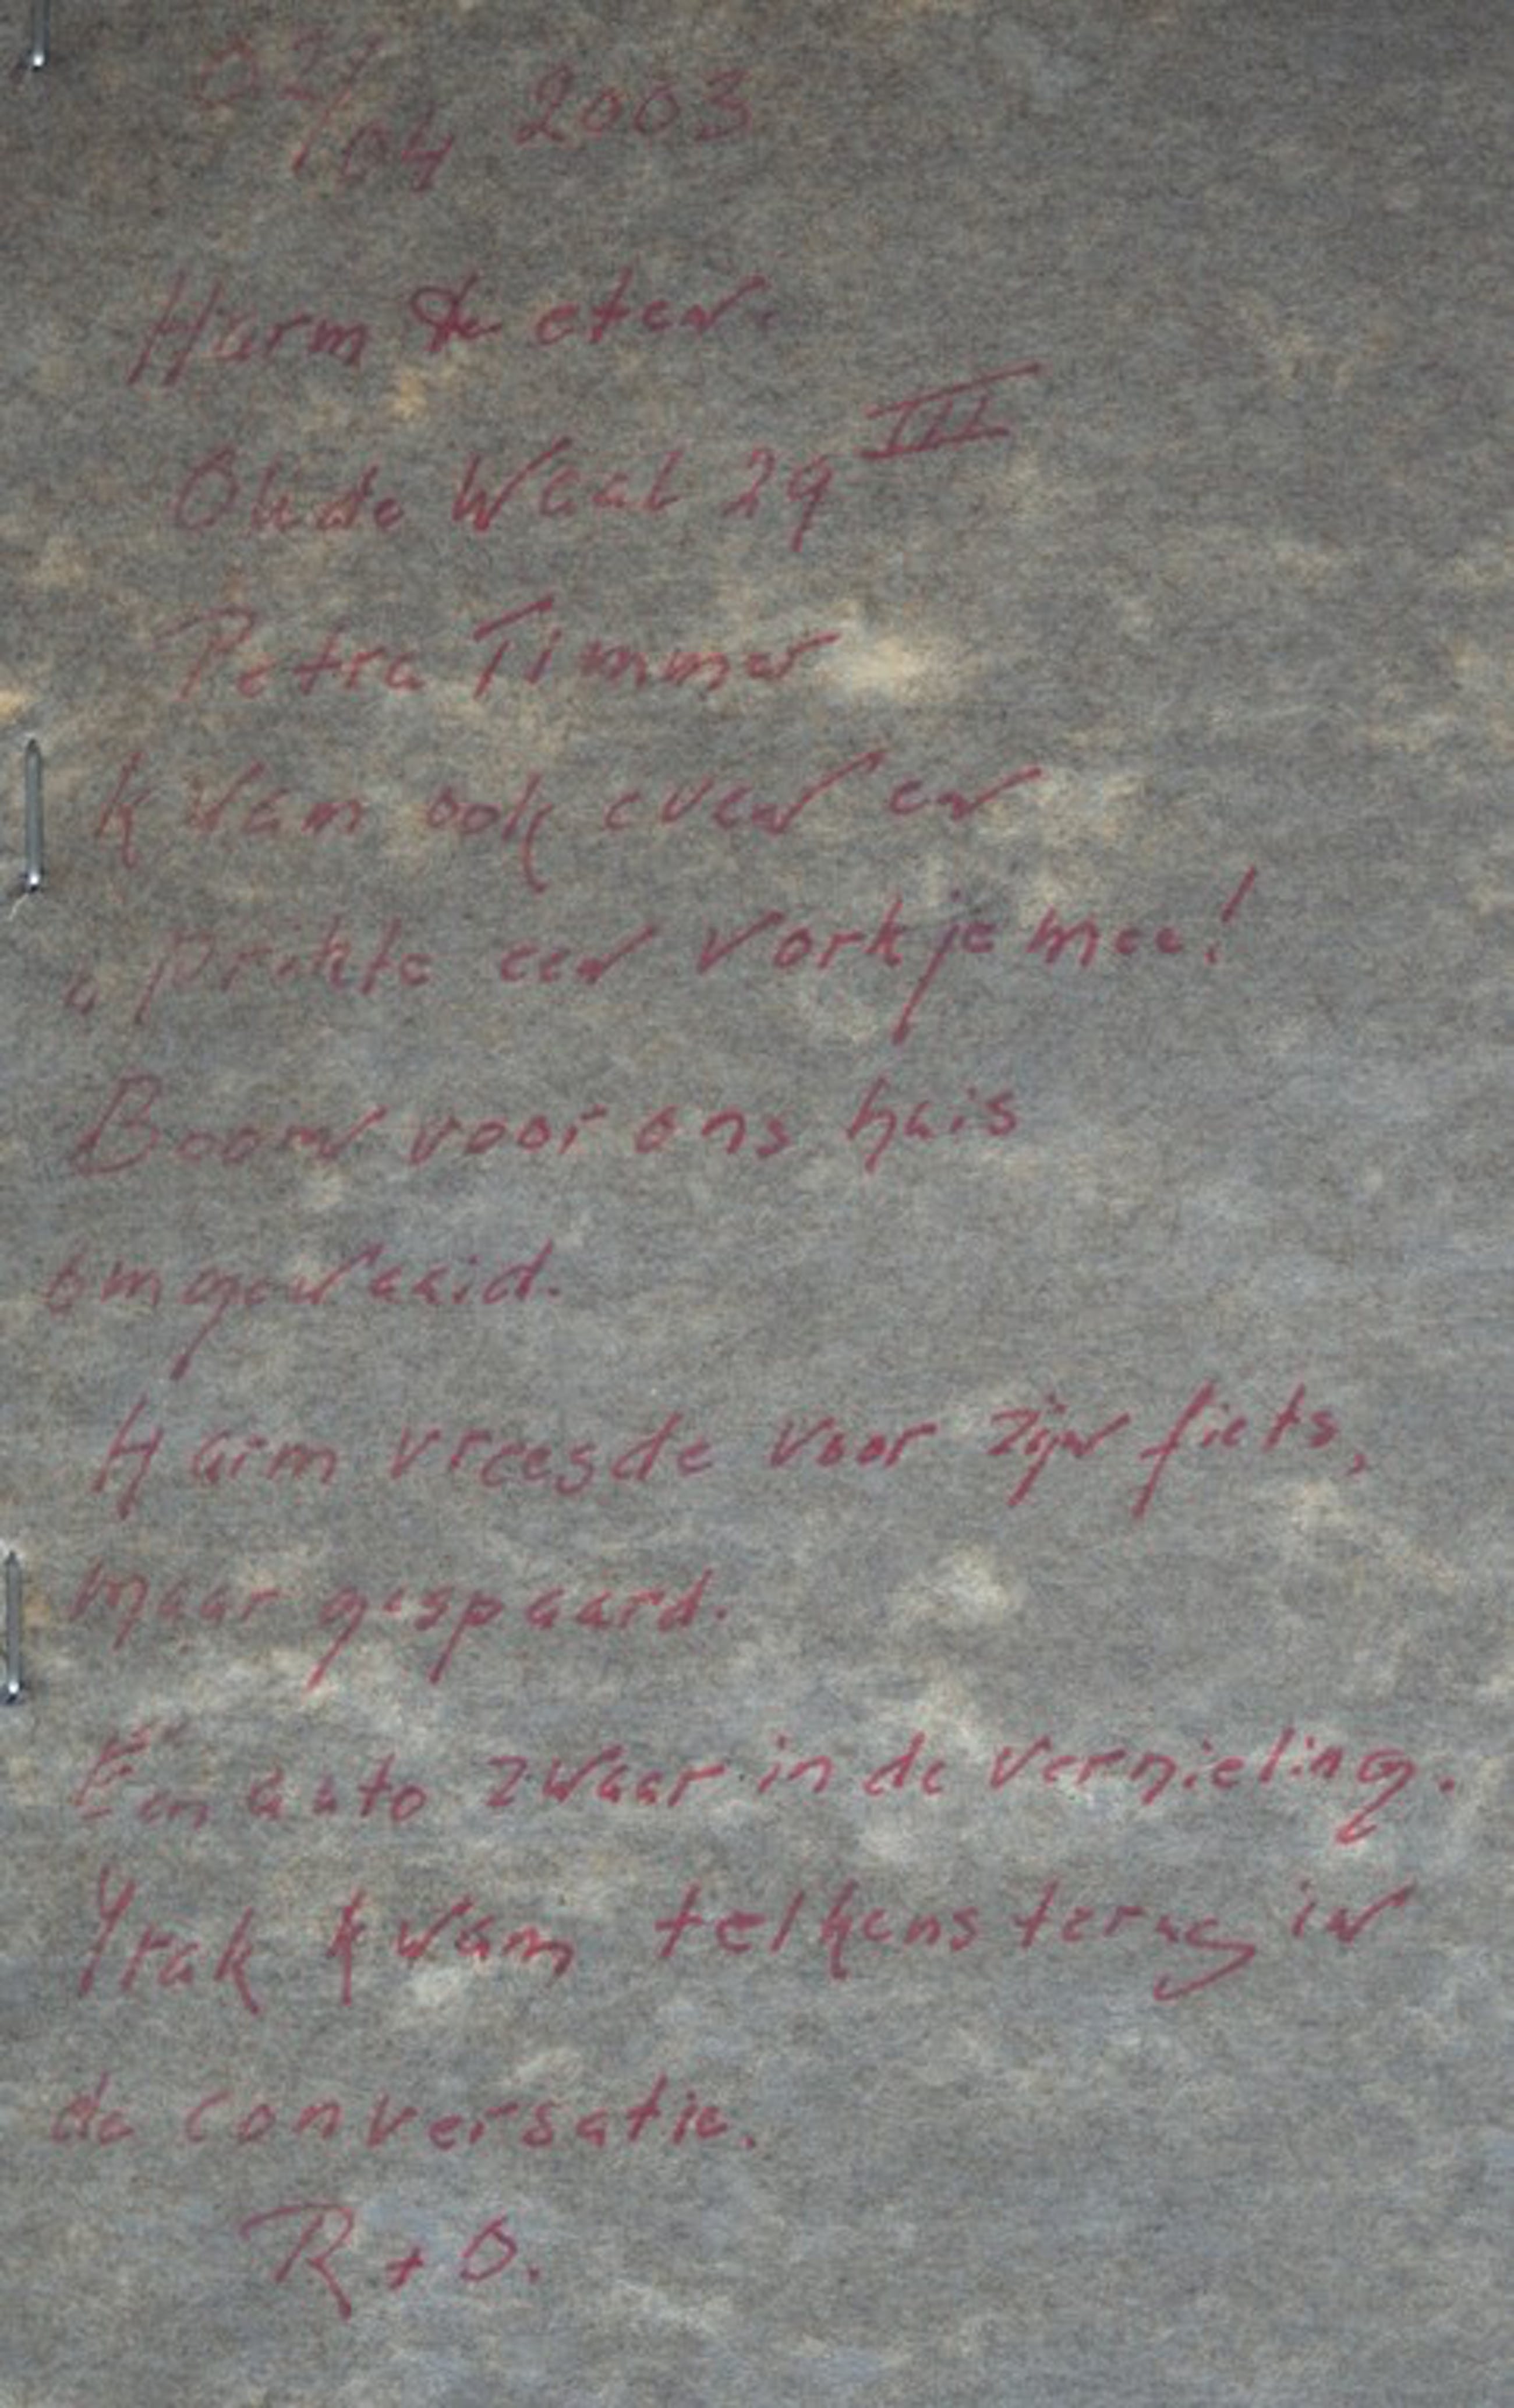 02/04 2003
Harm te eten.
Oude Waal 29 III
Petra Timmer
kwam ook even en
prikte een vorkje mee!
Boom voor ons huis
omgewaaid.
Harm vreesde voor zijn fiets,
maar gespaard.
Eén auto zwaar in de vernieling.
Yrak kwam telkens terug in
de conversatie.
R + O.